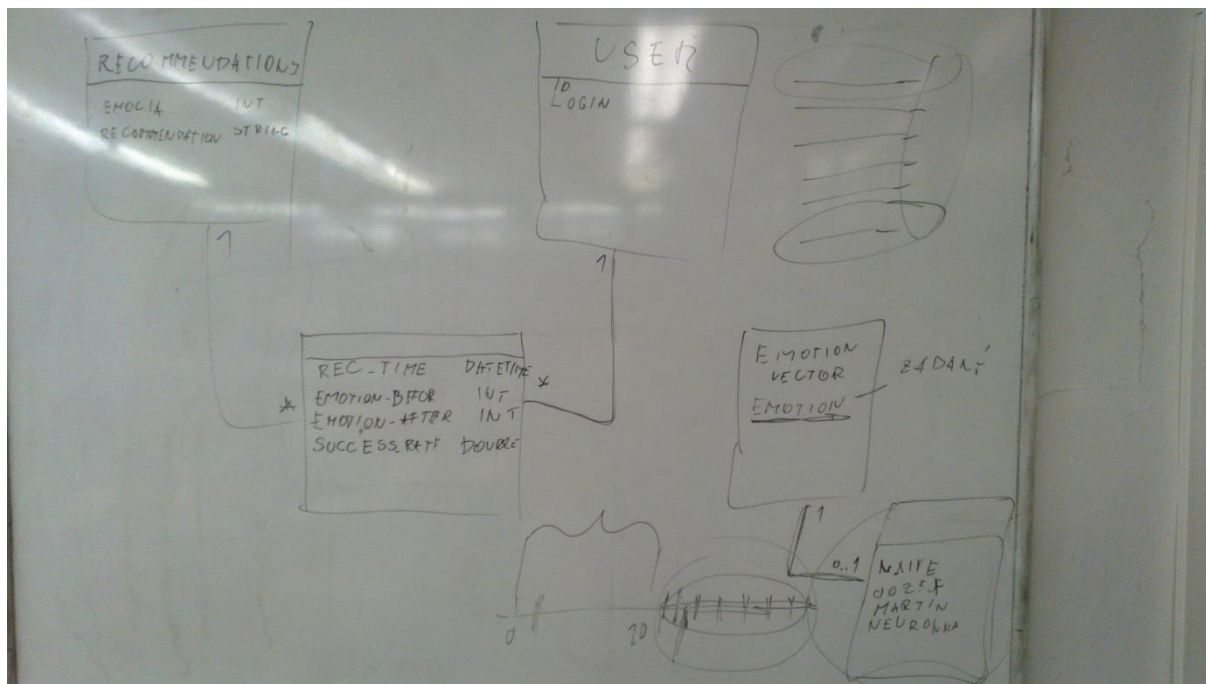 RECOMMENDATIONS
EMOCIA INT
RECOMMENDATION STRING
1
USER
ID
LOGIN
1
REC_TIME DATETIME
EMOTION-BEFOR INT
EMOTION-AFTER INT
SUCCESS_RATE DOUBLE
*
*
EMOTION
VECTOR
EMOTION
ZADANÍ
1
0..1
NAIVE
MARTIN
NEURONKA
0